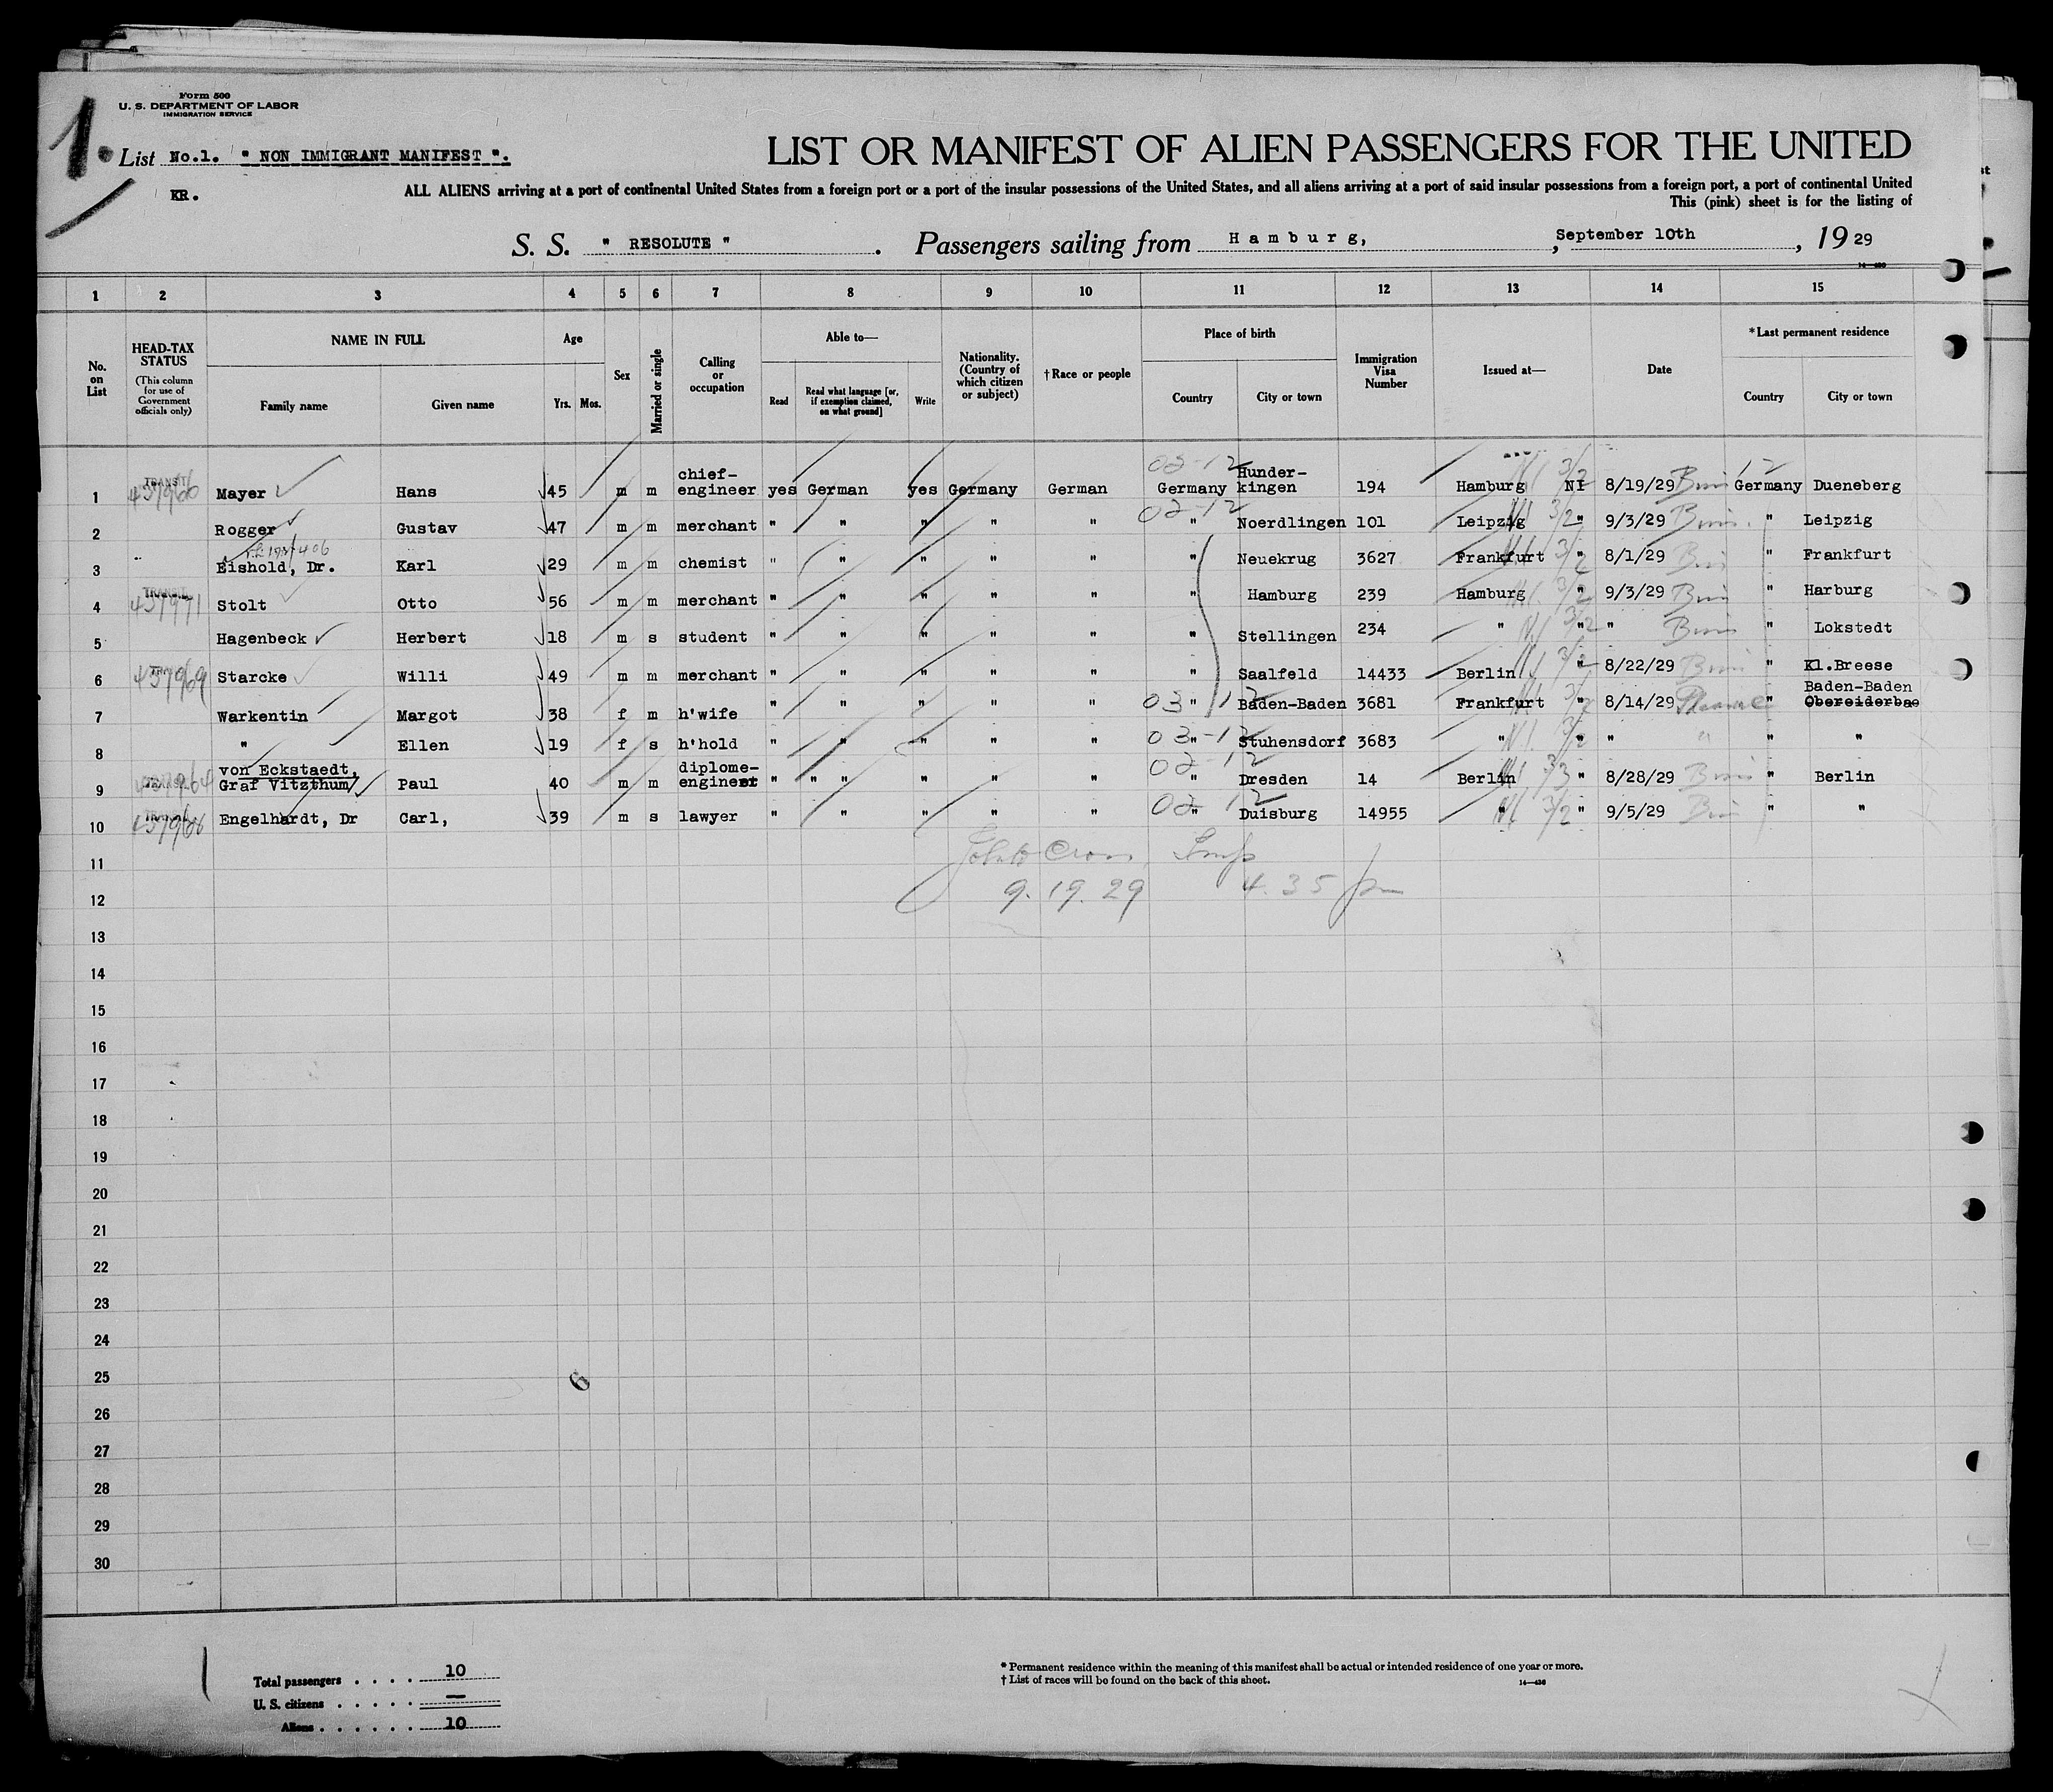 Form 500
U. S. DEPARTMENT OF LABOR
IMMIGRATION SERVICE
1.
List No.1. " NON IMMIGRANT MANIFEST ".
KR.
LIST OR MANIFEST OF ALIEN PASSENGERS FOR THE UNITED
ALL ALIENS arriving at a port of continental United States from a foreign port or a port of the insular possessions of the United States, and all aliens arriving at a port of said insular possessions from a foreign port, a port of continental United
This (pink) sheet is for the listing of
S. S. " RESOLUTE ". Passengers sailing from Hamburg, , September 10th , 19 29
1 2 3 4 5 6 7 8 9 10 11 12 13 14 15
No. on List
HEAD-TAX STATUS (This column for use of Government officials only)
NAME IN FULL Family name Given name
Age Yrs. Mos.
Sex
Married or single
Calling or occupation
Able to— Read Read what language [or, if exemption claimed, on what ground] Write
Nationality. (Country of which citizen or subject)
†Race or people
Place of birth Country City or town
Immigration Visa Number
Issued at—
Date
*Last permanent residence Country City or town
1 TRANSIT Mayer Hans 45 m m chief-engineer yes German yes Germany German 02-12 Germany Hunder-kingen 194 Hamburg NI 3/2 8/19/29 12 Germany Dueneberg
2 Rogger Gustav 47 m m merchant " " " " " 02-12 " Noerdlingen 101 Leipzig 3/2 " 9/3/29 " Leipzig
3 Eishold, Dr. Karl 29 m m chemist " " " " " " Neuekrug 3627 Frankfurt 3/2 " 8/1/29 " Frankfurt
4 437971 Stolt Otto 56 m m merchant " " " " " " Hamburg 239 Hamburg 3/2 " 9/3/29 " Harburg
5 Hagenbeck Herbert 18 m s student " " " " " " Stellingen 234 " 3/2 " " " Lokstedt
6 437969 Starcke Willi 49 m m merchant " " " " " " Saalfeld 14433 Berlin 3/2 " 8/22/29 " Kl.Breese
7 Warkentin Margot 38 f m h'wife " " " " " 03 " 12 Baden-Baden 3681 Frankfurt 3/2 " 8/14/29 Pleasure " Baden-Baden Obereiderbae
8 " Ellen 19 f s h'hold " " " " " 03-12 " Stuhensdorf 3683 " 3/2 " " " " "
9 von Eckstaedt, Graf Vitzthum Paul 40 m m diplome-engineer " " " " " " 02-12 " Dresden 14 Berlin 3/3 " 8/28/29 " Berlin
10 Engelhardt, Dr Carl, 39 m s lawyer " " " " " 02-12 " Duisburg 14955 " 3/2 " 9/5/29 " "
11
12 9.19.29 4.35 pm
13
14
15
16
17
18
19
20
21
22
23
24
25
6
26
27
28
29
30
Total passengers . . . . 10
U. S. citizens . . . . . —
Aliens . . . . . . 10
* Permanent residence within the meaning of this manifest shall be actual or intended residence of one year or more.
† List of races will be found on the back of this sheet.